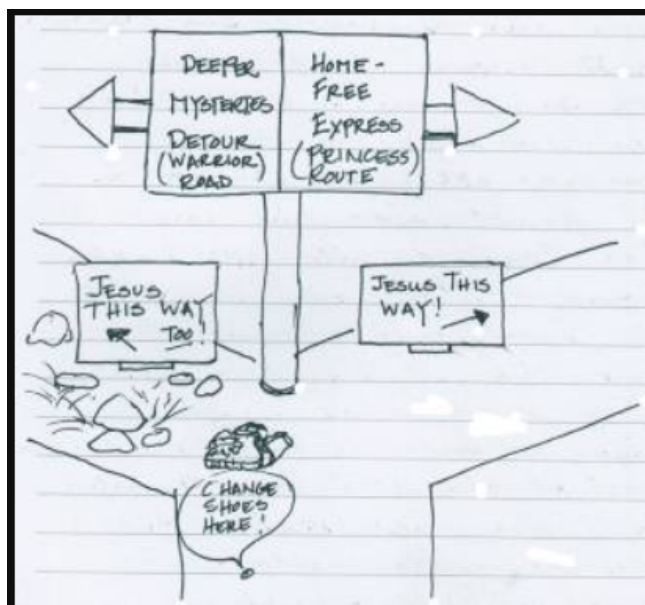 DEEPER
MYSTERIES
DETOUR
(WARRIOR)
ROAD
HOME-
FREE
EXPRESS
(PRINCESS)
ROUTE
JESUS
THIS WAY
TOO!
JESUS THIS
WAY!
CHANGE
SHOES
HERE!